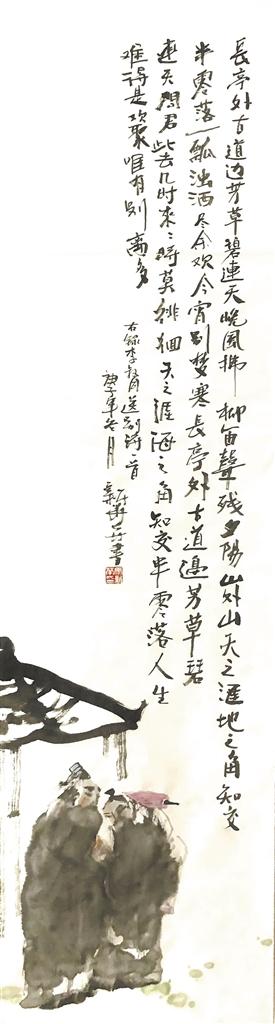 長亭外古道边芳草碧連天晚風拂柳笛聲残夕陽山外山天之涯地之角知交
半零落一瓢浊酒尽余欢今宵别梦寒長亭外古道邊芳草碧
連天問君此去几时来々時莫徘徊天之涯海之角知交半零落人生
難得是欢聚唯有别離多
右録李叔同送别詩一首
庚子年冬月
書